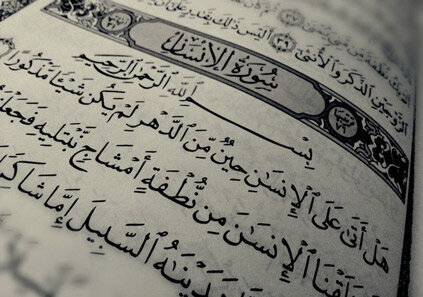 ٱلزَّوْجَيْنِ ٱلذَّكَرَ وَٱلْأُنثَىٰٓ ٣٩ أَلَيْسَ ذَٰلِكَ بِقَٰدِرٍ عَلَىٰٓ
سُورَةُ الإِنسَانِ
بِسْمِ ٱللَّهِ ٱلرَّحْمَٰنِ ٱلرَّحِيمِ
هَلْ أَتَىٰ عَلَى ٱلْإِنسَٰنِ حِينٌ مِّنَ ٱلدَّهْرِ لَمْ يَكُن شَيْـًٔا مَّذْكُورًا
خَلَقْنَا ٱلْإِنسَٰنَ مِن نُّطْفَةٍ أَمْشَاجٍ نَّبْتَلِيهِ
ٱلسَّبِيلَ إِمَّا شَاكِرًا